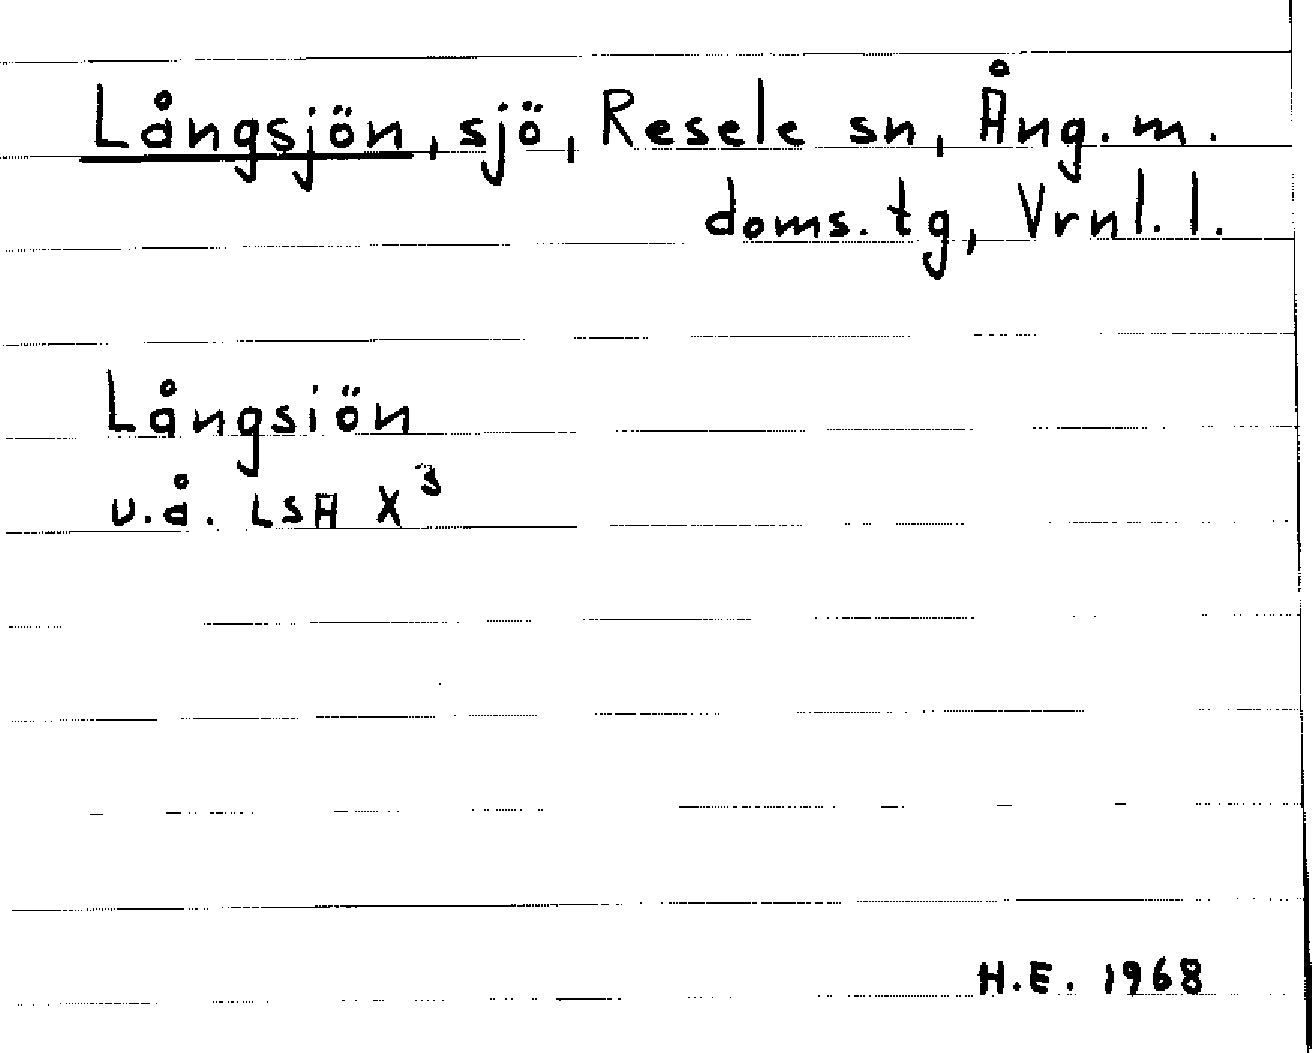 Långsjön, sjö, Resele sn, Ång. m.
doms. tg, Vrnl. l.
Långsiön
u.å. LSA X³
H.E. 1968